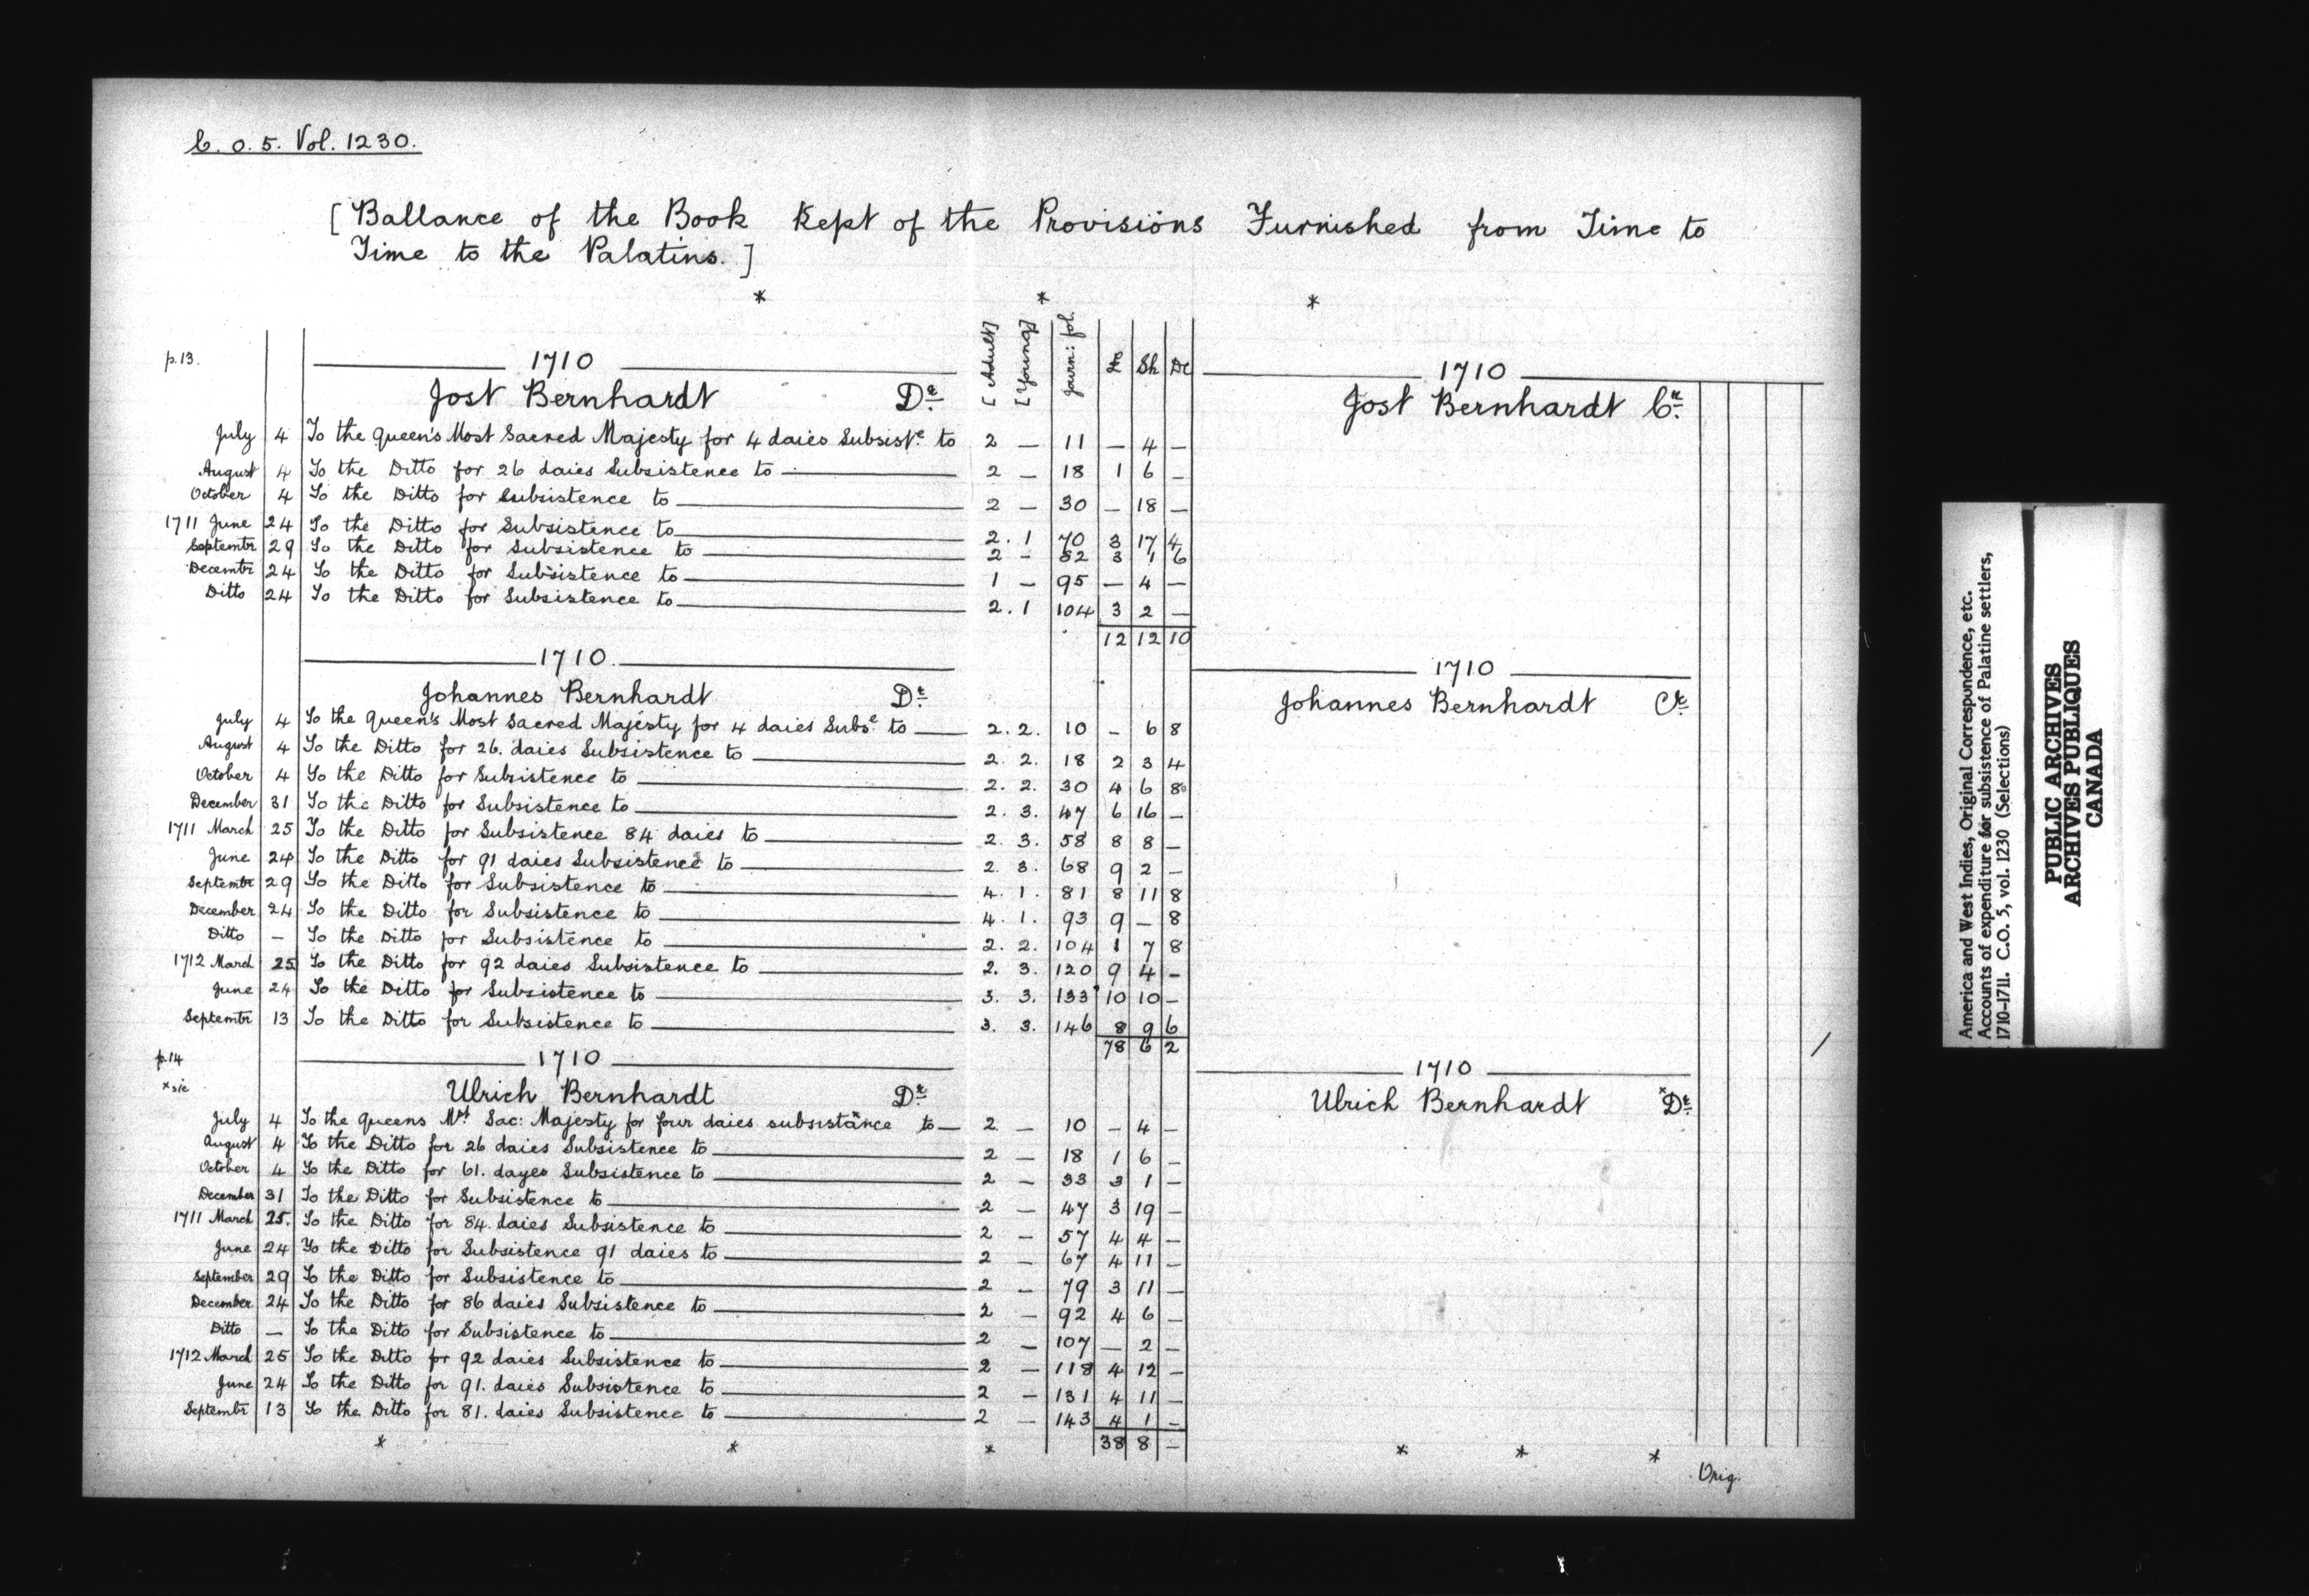 C. O. 5. Vol. 1230.
[Ballance of the Book Kept of the Provisions Furnished from Time to
Time to the Palatins.]
* * *
p.13. 1710 [Adult] [Young] Journ: fol. £ Sh De 1710
Jost Bernhardt Dr. Jost Bernhardt Cr.
July 4 To the Queen's Most Sacred Majesty for 4 daies Subsist.e to 2 — 11 — 4 —
August 4 To the Ditto for 26 daies Subsistence to 2 — 18 1 6 —
October 4 To the Ditto for Subsistence to 2 — 30 — 18 —
1711 June 24 To the Ditto for Subsistence to 2. 1 70 3 17 4
Septembr 29 To the Ditto for Subsistence to 2 — 82 3 1 6
Decembr 24 To the Ditto for Subsistence to 1 — 95 — 4 —
Ditto 24 To the Ditto for Subsistence to 2. 1 104 3 2 —
12 12 10
1710. 1710
Johannes Bernhardt Dr. Johannes Bernhardt Cr.
July 4 To the Queen's Most Sacred Majesty for 4 daies Subs.e to 2. 2. 10 — 6 8
August 4 To the Ditto for 26. daies Subsistence to 2. 2. 18 2 3 4
October 4 To the Ditto for Subsistence to 2. 2. 30 4 6 8
December 31 To the Ditto for Subsistence to 2. 3. 47 6 16 —
1711 March 25 To the Ditto for Subsistence 84 daies to 2. 3. 58 8 8 —
June 24 To the Ditto for 91 daies Subsistence to 2. 3. 68 9 2 —
Septembr 29 To the Ditto for Subsistence to 4. 1. 81 8 11 8
December 24 To the Ditto for Subsistence to 4. 1. 93 9 — 8
Ditto — To the Ditto for Subsistence to 2. 2. 104 1 7 8
1712 March 25 To the Ditto for 92 daies Subsistence to 2. 3. 120 9 4 —
June 24 To the Ditto for Subsistence to 3. 3. 133 10 10 —
Septembr 13 To the Ditto for Subsistence to 3. 3. 146 8 9 6
78 6 2
p.14 1710 1710
* sic Ulrich Bernhardt Dr. Ulrich Bernhardt *Dr.
July 4 To the Queens Mst Sac: Majesty for four daies subsistance to 2 — 10 — 4 —
August 4 To the Ditto for 26 daies Subsistence to 2 — 18 1 6 —
October 4 To the Ditto for 61. dayes Subsistence to 2 — 33 3 1 —
December 31 To the Ditto for Subsistence to 2 — 47 3 19 —
1711 March 25. To the Ditto for 84. daies Subsistence to 2 — 57 4 4 —
June 24 To the Ditto for Subsistence 91 daies to 2 — 67 4 11 —
September 29 To the Ditto for Subsistence to 2 — 79 3 11 —
December 24 To the Ditto for 86 daies Subsistence to 2 — 92 4 6 —
Ditto — To the Ditto for Subsistence to 2 — 107 — 2 —
1712 March 25 To the Ditto for 92 daies Subsistence to 2 — 118 4 12 —
June 24 To the Ditto for 91. daies Subsistence to 2 — 131 4 11 —
Septembr 13 To the Ditto for 81. daies Subsistence to 2 — 143 4 1 —
38 8 —
* * * * * *
Orig.
America and West Indies, Original Correspondence, etc.
Accounts of expenditure for subsistence of Palatine settlers,
1710-1711. C.O. 5, vol. 1230 (Selections)
PUBLIC ARCHIVES
ARCHIVES PUBLIQUES
CANADA